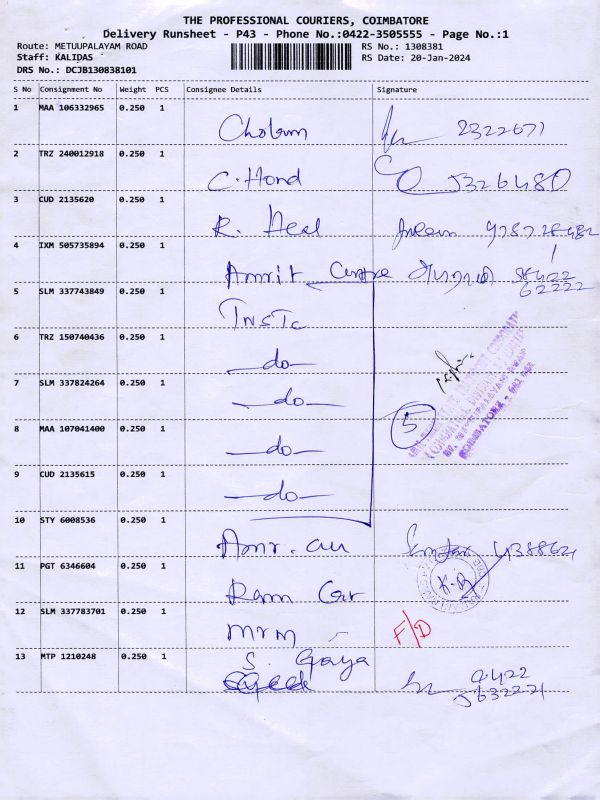 THE PROFESSIONAL COURIERS, COIMBATORE
Delivery Runsheet - P43 - Phone No.:0422-3505555 - Page No.:1
Route: METUUPALAYAM ROAD RS No.: 1308381
Staff: KALIDAS RS Date: 20-Jan-2024
DRS No.: DCJB130838101
S No Consignment No Weight PCS Consignee Details Signature
1 MAA 106332965 0.250 1
2322671
2 TRZ 240012918 0.250 1
C. Hond 5326480
3 CUD 2135620 0.250 1
R. Heal
4 IXM 505735894 0.250 1
Amrit Centre
5 SLM 337743849 0.250 1
TNSTC
6 TRZ 150740436 0.250 1
-do-
7 SLM 337824264 0.250 1
-do-
5
8 MAA 107041400 0.250 1
-do-
9 CUD 2135615 0.250 1
-do-
10 STY 6008536 0.250 1
11 PGT 6346604 0.250 1
Ram Car
12 SLM 337783701 0.250 1
mrm F/D
13 MTP 1210248 0.250 1
S. Gaya